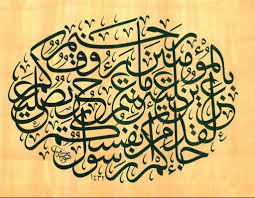 لقد جاءكم رسول من أنفسكم
عزيز عليه ما عنتم حريص عليكم
بالمؤمنين رءوف رحيم